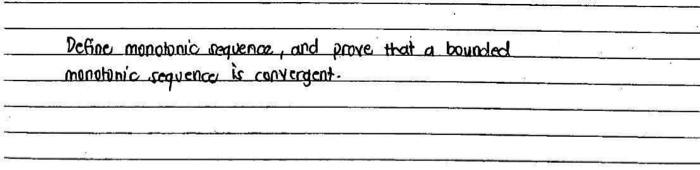 Define monotonic sequence, and prove that a bounded
monotonic sequence is convergent.